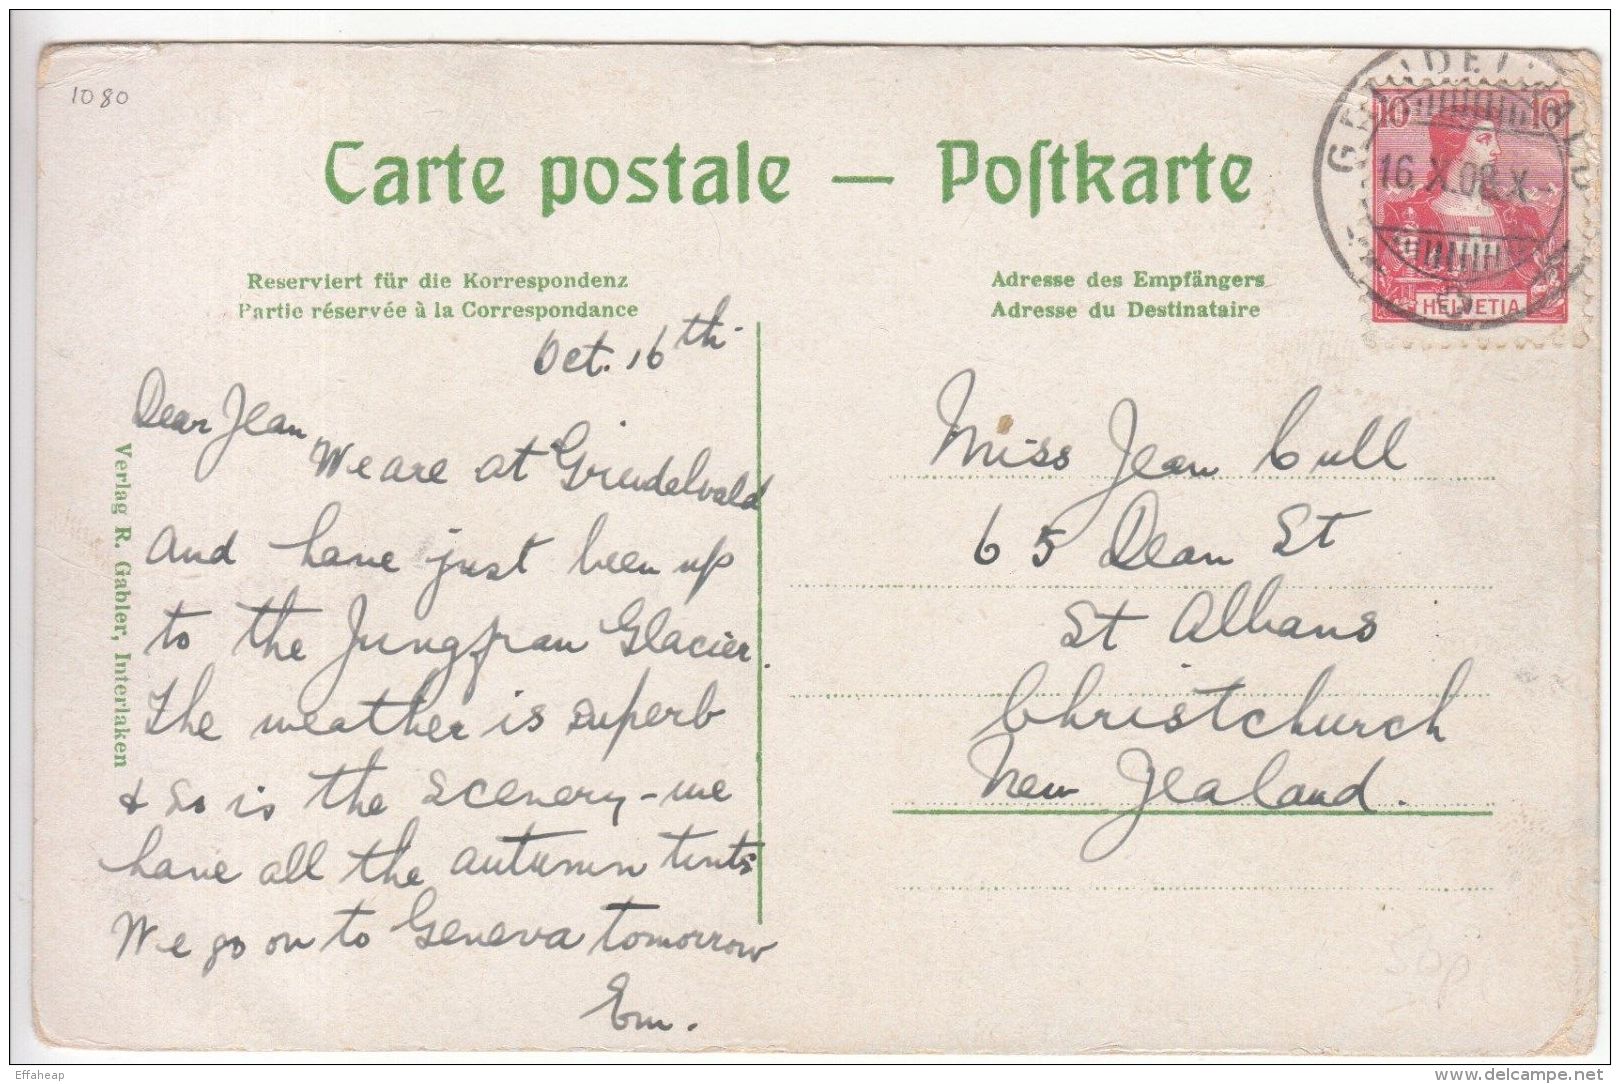 1080
Carte postale — Poſtkarte
Reserviert für die Korrespondenz
Partie réservée à la Correspondance
Adresse des Empfängers
Adresse du Destinataire
10 10
HELVETIA
16.X.08.X
Oct. 16th
Dear Jean
We are at Grindelwald
and have just been up
to the Jungfrau Glacier.
The weather is superb
& so is the scenery - we
have all the autumn tints
We go on to Geneva tomorrow
Em.
Miss Jean Cull
65 Dean St
St Albans
Christchurch
New Zealand.
Verlag R. Gabler, Interlaken
Effaheap
delcampe.net